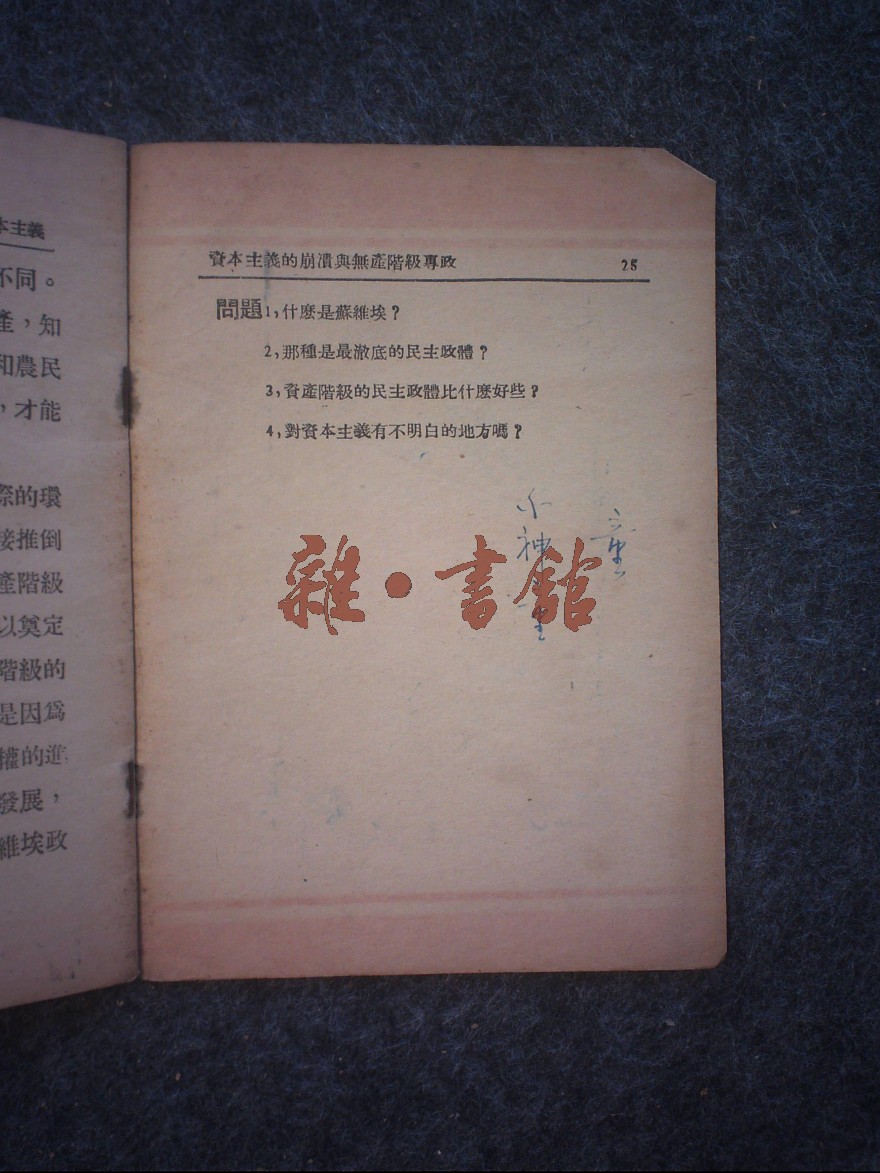 本主義
不同。
產，知
和農民
，才能
際的環
接推倒
產階級
以奠定
階級的
是因爲
權的進
發展，
維埃政
資本主義的崩潰與無產階級專政 25
問題1，什麼是蘇維埃？
2，那種是最澈底的民主政體？
3，資產階級的民主政體比什麼好些？
4，對資本主義有不明白的地方嗎？
童
小神童
雜·書館